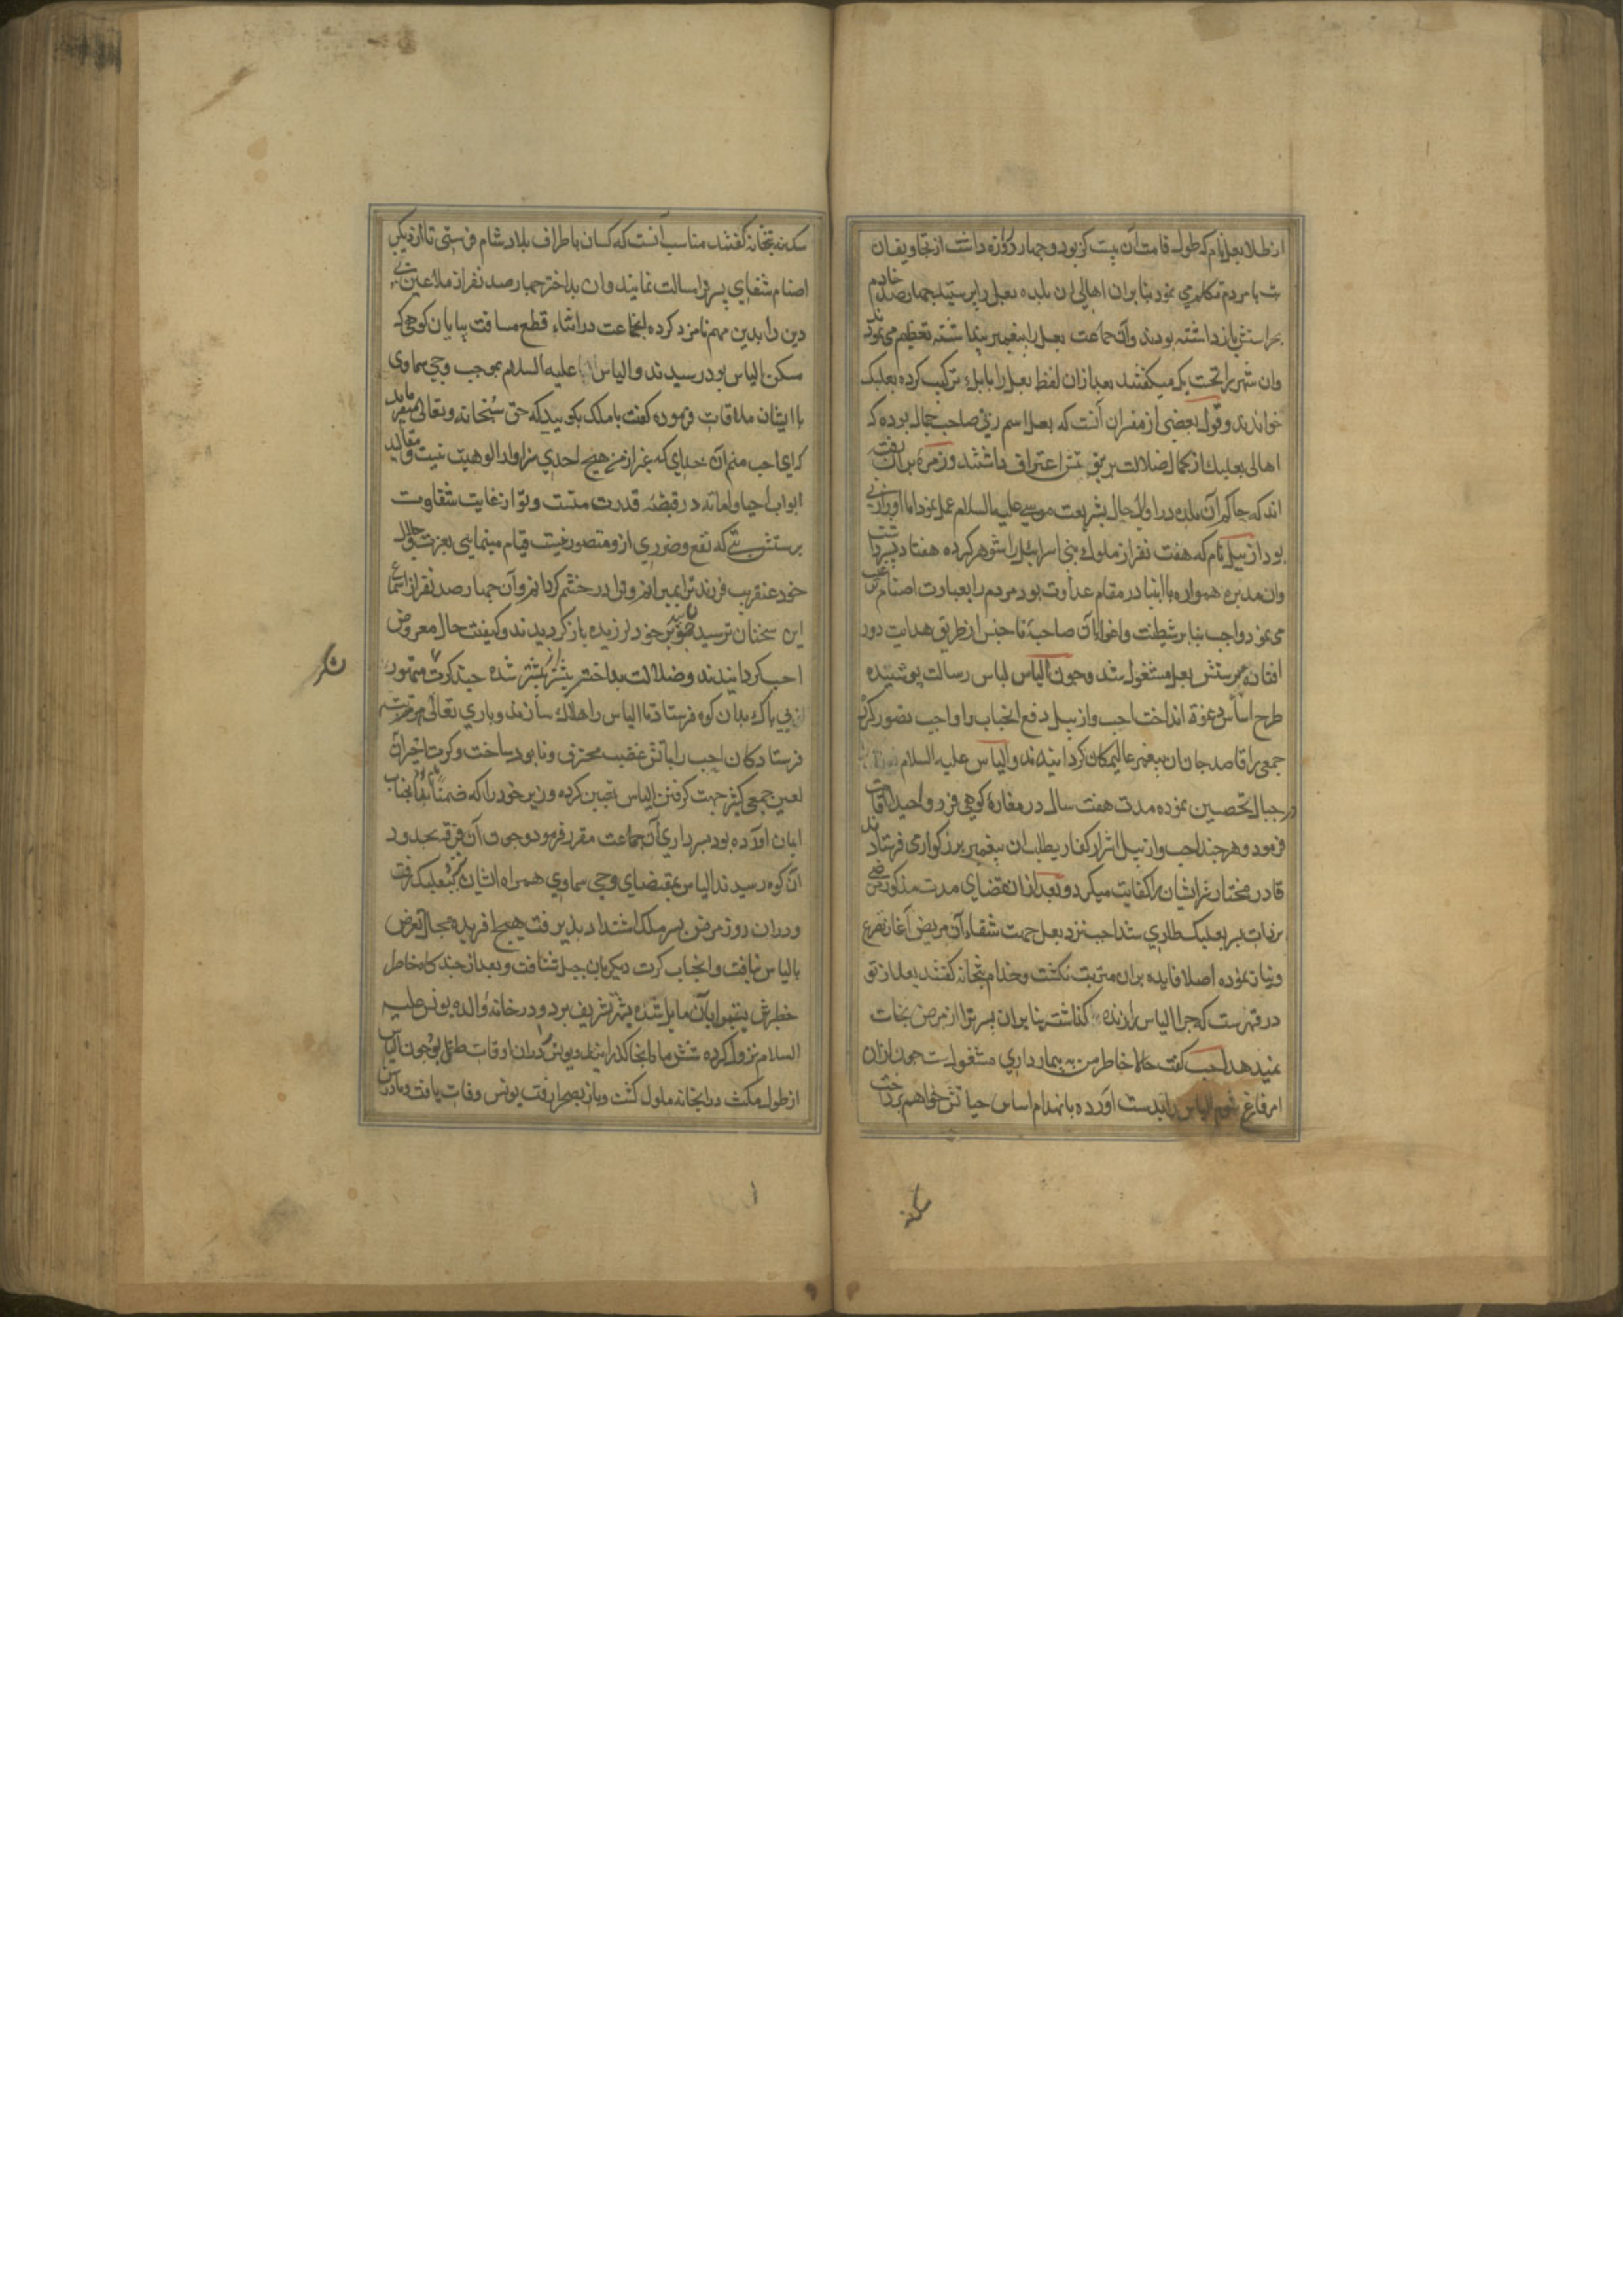 از طلا بعل نام که طول قامت آن بیست گز بود و چهار روزه داشت از تجاویف آن
با مردم تکلم می نمود بنابران اهالی ان بلده بعل را پرستیده چهارصد خادم
بحراستش بازداشته بودند وآن جماعت بعل را پیغمبر پنداشته تعظیم می نمودند
وان شهر را تحت بک میکفتند بعد ازان لفظ بعل را با بک ترکیب کرده بعلبک
خواندند وقول بعضی از مفسران آنست که بعل اسم زنی صاحب جمال بوده که
اهالی بعلبک از کمال ضلالت بربوبیتش اعتراف داشتند وزمرهٔ بران رفته
اند که حاکم آن بلده در اوایل حال بشریعت موسی علیه السلام عمل نمود اما او را زنی
بود ازبیل نام که هفت نفر از ملوک بنی اسرائیل را شوهر کرده هفتاد پسر داشت
وان مدبره همواره با انبیا در مقام عداوت بود مردم را بعبادت اصنام ترغیب
می نمود واجب بنابر شیطنت واغوای آن صاحبهٔ ناجنس از طریق هدایت دور
افتاده بپرستش بعل مشغول شد وچون الیاس لباس رسالت پوشیده
طرح اساس دعوة انداخت اجب وازبیل دفع انجناب را واجب تصور کرده
جمعی را قاصد جان ان پیغمبر عالیمکان کردانیدند والیاس علیه السلام
در جبال تحصین نموده مدت هفت سال در مغارهٔ کوهی فرد واحید اوقات
فرمود وهر چند اجب وازبیل اشرار کفار بطلب ان پیغمبر بزرکواری فرستادند
قادر مختار شر ایشان را کفایت میکرد وبعد از انقضای مدت مذکور مرضی
بر ذات پسر بعلبک طاری شد اجب نزد بعل جهت شفاء آن مریض آغاز تضرع
ونیاز نموده اصلا فایده بران مترتب نکشت وخدام بتخانه کفتند بعل از تو
در قهرست که چرا الیاس را زنده کذاشته بنابران پسر ترا از مرض نجات
نمیدهد اجب کفت حالا خاطر من به بیمارداری مشغولست چون ازان
امر فارغ شوم الیاس را بدست آورده بانهدام اساس حیاتش خواهم پرداخت
سکنه
سکنه بتخانه کفتند مناسب آنست که کسان باطراف بلاد شام فرستی تا از دیکر
اصنام شفای پسر ترا مسالت نمایند وان بداختر چهارصد نفر از ملاعین بی
دین را بدین مهم نامزد کرده انجماعت در اثناء قطع مسافت بپایان کوهی که
مسکن الیاس بود رسیدند والیاس علیه السلام بموجب وحی سماوی
با ایشان ملاقات فرموده کفت با ملک بکویید که حق سبحانه وتعالی میفرماید
که ای اجب منم آن خدای که بغیر از من هیچ احدی سزاوار الوهیت نیست ومقالید
ابواب احیا واماته در قبضهٔ قدرت منست وتو از غایت شقاوت
برستش بتی که نفع وضرری ازو متصور نیست قیام مینمایی بعزت وجلال
خود عنقریب فرزند ترا بمیرانم وترا در خشم کردانم وآن چهارصد نفر از استماع
این سخنان ترسیده چون بید بر خود لرزیده باز کردیدند وکیفیت حال معروض
اجب کردانیدند وضلالت بداختر بیشتر از پیشتر شده چند کرت متهور
ان بی باک بدان کوه فرستاد تا الیاس را هلاک سازند وباری تعالی هر مرتبه
فرستادکان اجب را باتش غضب محترق ونابود ساخت وکرت اخیر آن
لعین جمعی کثیر جهت کرفتن الیاس تعیین کرده وزیر خود را که ضمنا بانجناب
ایمان آورده بود بسرداری آن جماعت مقرر فرمود وچون آن فرقه بحدود
آن کوه رسیدند الیاس بمقتضای وحی سماوی همراه ایشان ببعلبک رفت
ودران روز مرض پسر ملک اشتداد پذیرفت هیچ افریده مجال تعرض
بالیاس نیافت وانجناب کرت دیکر بان جبل شتافت وبعد از چند کاه خاطر
خطیرش بشهر تشریف برد ودر خانهٔ والدهٔ یونس علیه
السلام نزول کرده شش ماه انجا کذرانید ویونس دران اوقات طفل بود چون الیاس
از طول مکث درانخانه ملول کشت وباز بصحرا رفت یونس وفات یافت ومادرش